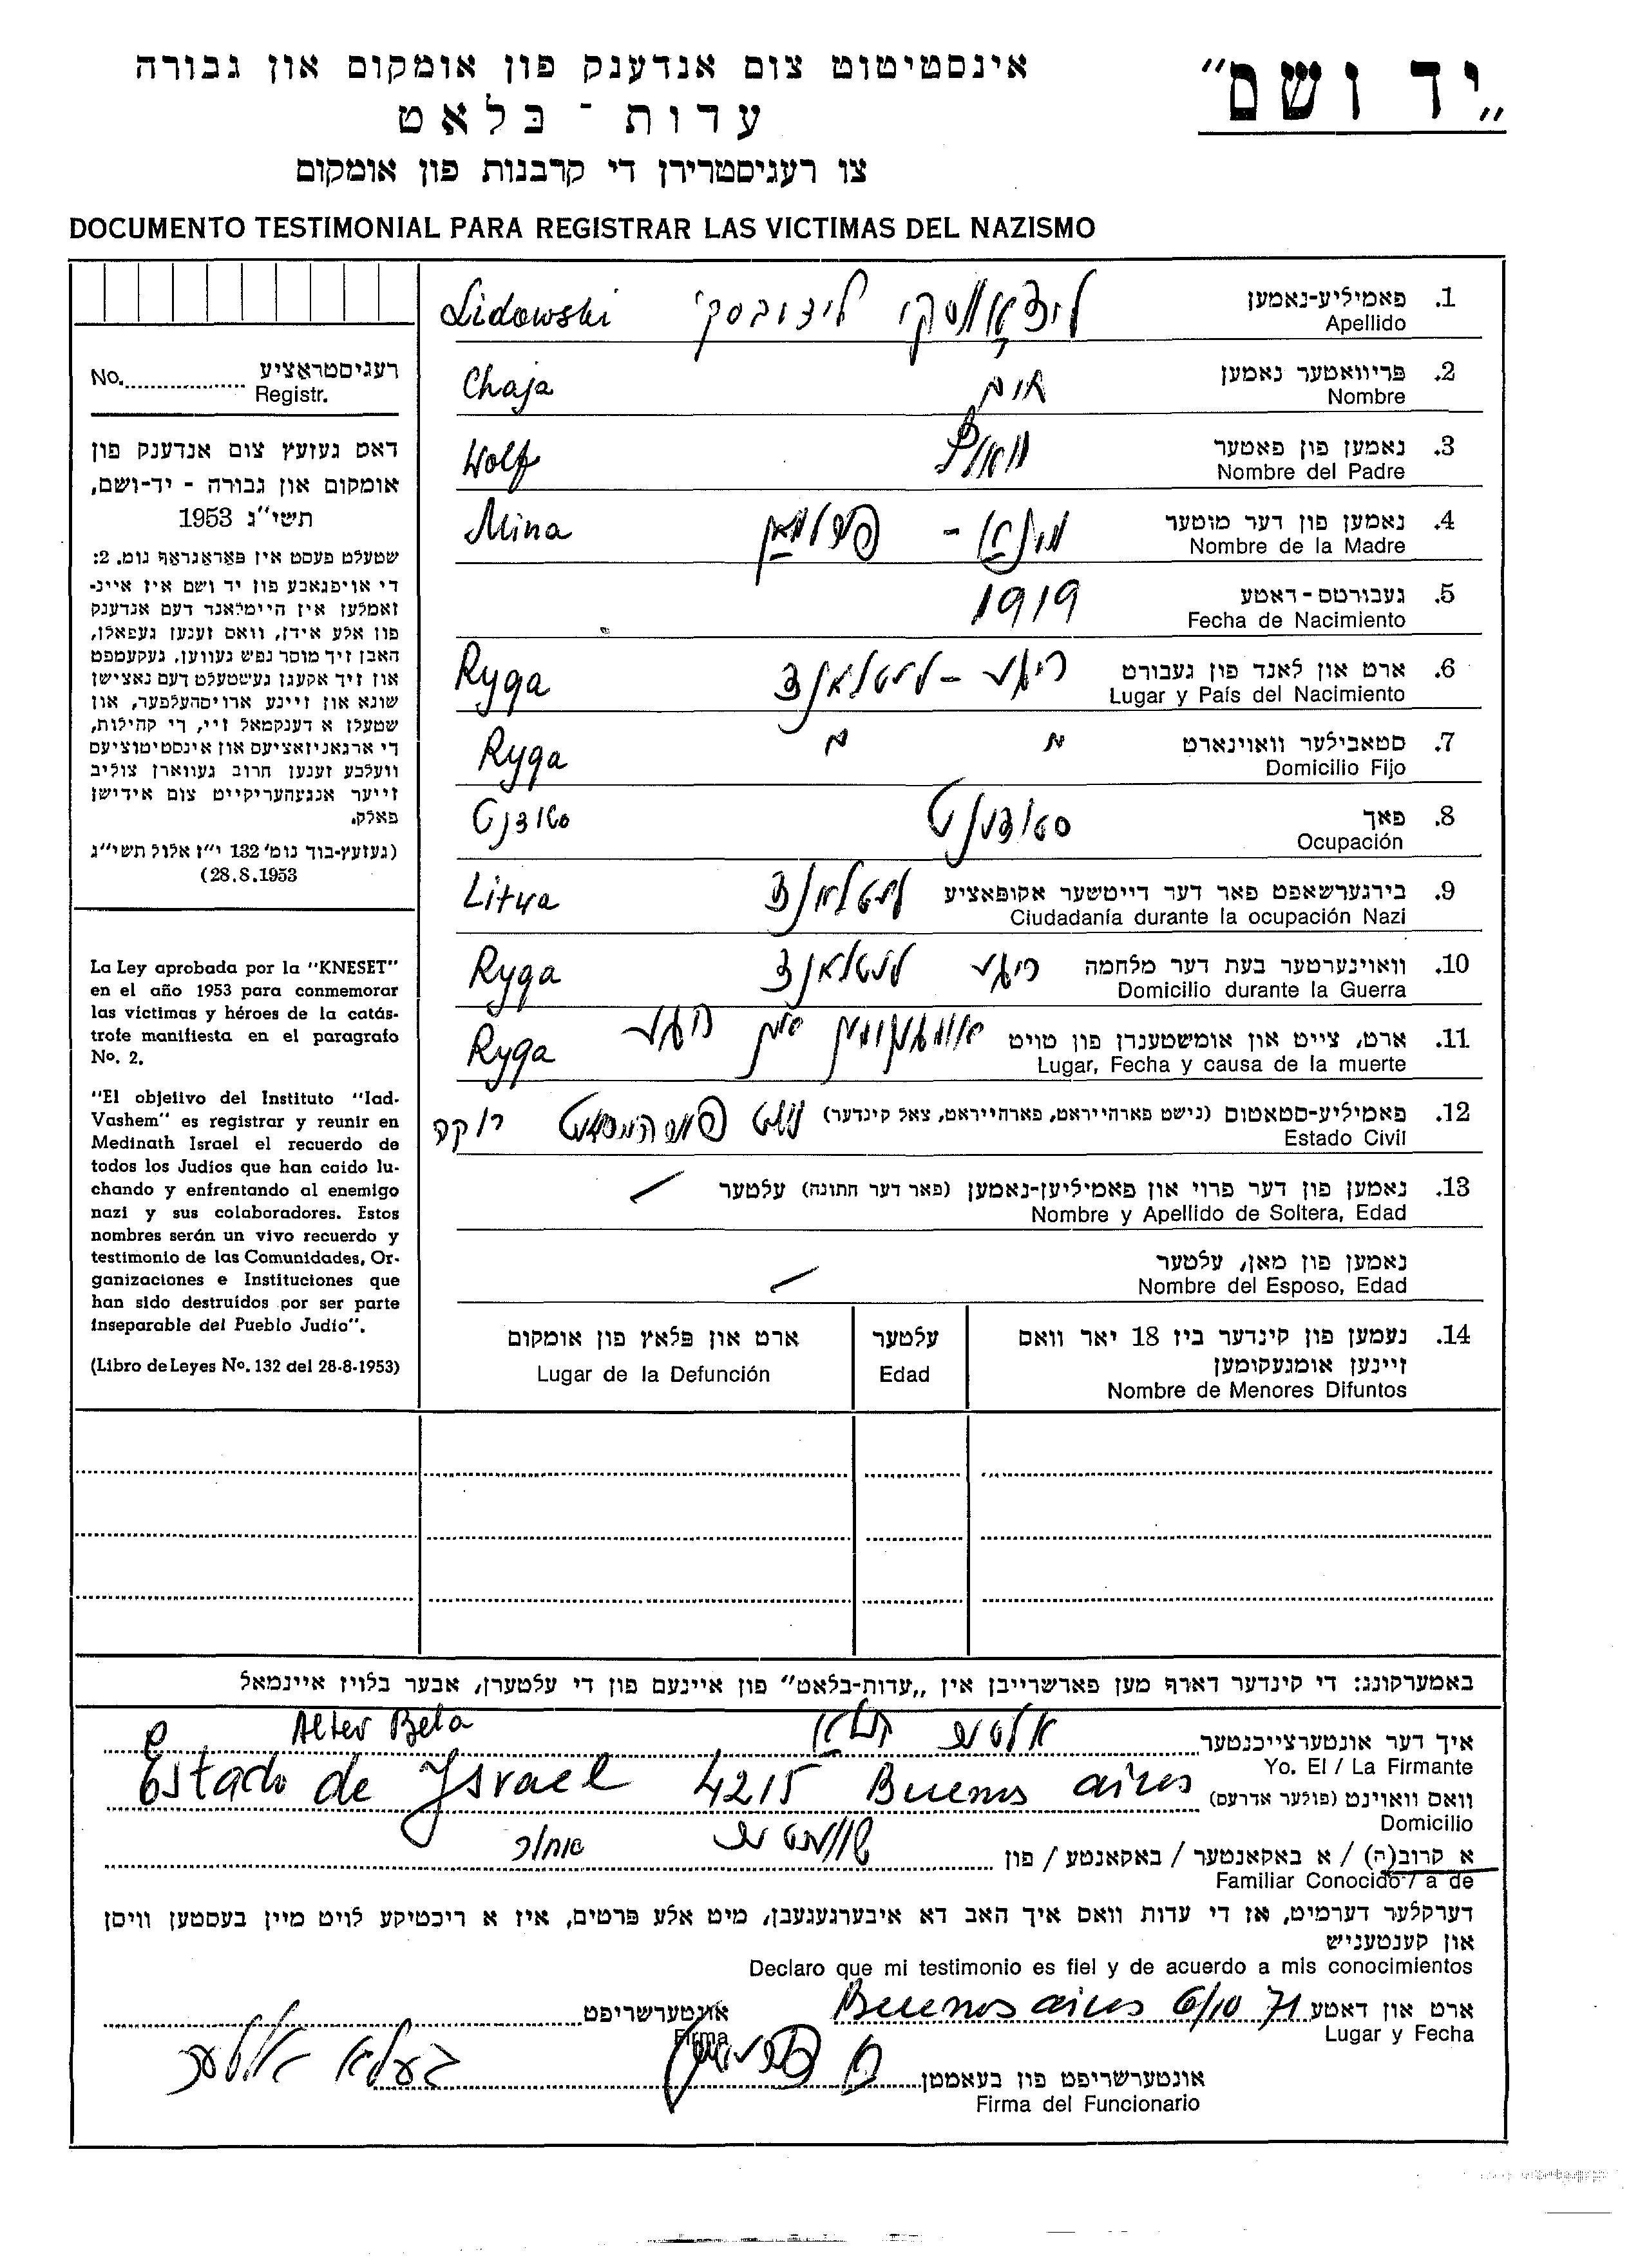 „יד ושם"
אינסטיטוט צום אנדענק פון אומקום און גבורה
עדות - בלאט
צו רעגיסטרירן די קרבנות פון אומקום
DOCUMENTO TESTIMONIAL PARA REGISTRAR LAS VICTIMAS DEL NAZISMO
רעגיסטראציע
No. Registr.
דאס געזעץ צום אנדענק פון
אומקום און גבורה - יד-ושם,
תשי"ג 1953
שטעלט פעסט אין פאראגראף נומ. 2:
די אויפגאבע פון יד ושם איז איינ-
זאמלען אין היימלאנד דעם אנדענק
פון אלע אידן, וואס זענען געפאלן,
האבן זיך מוסר נפש געווען, געקעמפט
און זיך אקעגן געשטעלט דעם נאצישן
שונא און זיינע ארויסהעלפער, און
שטעלן א דענקמאל זיי, די קהילות,
די ארגאניזאציעס און אינסטיטוציעס
וועלכע זענען חרוב געווארן צוליב
זייער אנגעהעריקייט צום אידישן
פאלק.
(געזעץ-בוך נומ' 132 י"ז אלול תשי"ג
28.8.1953)
La Ley aprobada por la "KNESET"
en el año 1953 para conmemorar
las víctimas y héroes de la catás-
trofe manifiesta en el paragrafo
No. 2.
"El objetivo del Instituto "Iad-
Vashem" es registrar y reunir en
Medinath Israel el recuerdo de
todos los Judíos que han caído lu-
chando y enfrentando al enemigo
nazi y sus colaboradores. Estos
nombres serán un vivo recuerdo y
testimonio de las Comunidades, Or-
ganizaciones e Instituciones que
han sido destruídos por ser parte
inseparable del Pueblo Judío".
(Libro de Leyes Nº. 132 del 28-8-1953)
1. פאמיליע-נאמען לידאווסקי לידובסקי Lidowski
Apellido
2. פריוואטער נאמען חיה Chaja
Nombre
3. נאמען פון פאטער וואלף Wolf
Nombre del Padre
4. נאמען פון דער מוטער מינא - Mina
Nombre de la Madre
5. געבורטס-דאטע 1919
Fecha de Nacimiento
6. ארט און לאנד פון געבורט ריגע - לעטלאנד Ryga
Lugar y País del Nacimiento
7. סטאבילער וואוינארט " " Ryga
Domicilio Fijo
8. פאך סטודענט סטודנט
Ocupación
9. בירגערשאפט פאר דער דייטשער אקופאציע לעטלאנד Litwa
Ciudadanía durante la ocupación Nazi
10. וואוינערטער בעת דער מלחמה ריגע לעטלאנד Ryga
Domicilio durante la Guerra
11. ארט, צייט און אומשטענדן פון טויט אומגעקומען אין ריגע Ryga
Lugar, Fecha y causa de la muerte
12. פאמיליע-סטאטוס (נישט פארהייראט, פארהייראט, צאל קינדער) נישט פארהייראט רוקה
Estado Civil
13. נאמען פון דער פרוי און פאמיליען-נאמען (פאר דער חתונה) עלטער
Nombre y Apellido de Soltera, Edad
נאמען פון מאן, עלטער
Nombre del Esposo, Edad
14. נעמען פון קינדער ביז 18 יאר וואס
זיינען אומגעקומען
Nombre de Menores Difuntos
עלטער
Edad
ארט און פלאץ פון אומקום
Lugar de la Defunción
באמערקונג: די קינדער דארף מען פארשרייבן אין „עדות-בלאט" פון איינעם פון די עלטערן, אבער בלויז איינמאל
איך דער אונטערצייכנטער אלטער בעלא Alter Bela
Yo. El / La Firmante
וואס וואוינט (פולער אדרעס) Estado de Ysrael 4215 Buenos aires
Domicilio
א קרוב(ה) / א באקאנטער / באקאנטע / פון שוועסטער אחות
Familiar Conocido / a de
דערקלער דערמיט, אז די עדות וואס איך האב דא איבערגעגעבן, מיט אלע פרטים, איז א ריכטיקע לויט מיין בעסטען וויסן
און קענטעניש
Declaro que mi testimonio es fiel y de acuerdo a mis conocimientos
ארט און דאטע Buenos aires 6/10 71 אונטערשריפט
Lugar y Fecha Firma
בעלא אלטער
אונטערשריפט פון בעאמטן
Firma del Funcionario